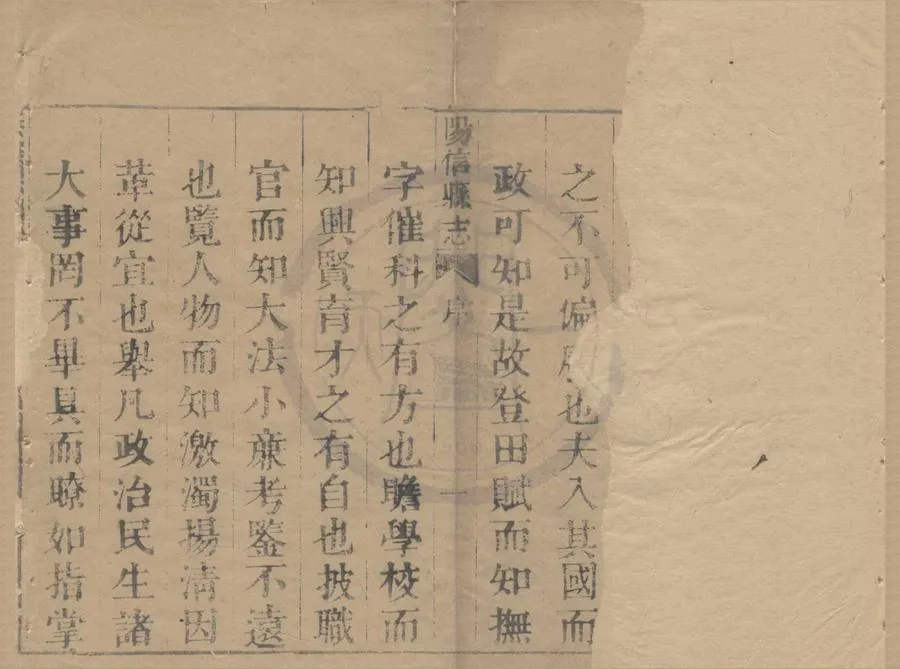 之不可偏廢也夫入其國而
政可知是故登田賦而知撫
陽信縣志 序 一
字催科之有方也瞻學校而
知興賢育才之有自也披職
官而知大法小亷考鑒不遠
也覽人物而知激濁揚淸因
革從宜也舉凡政治民生諸
大事罔不畢具而瞭如指掌